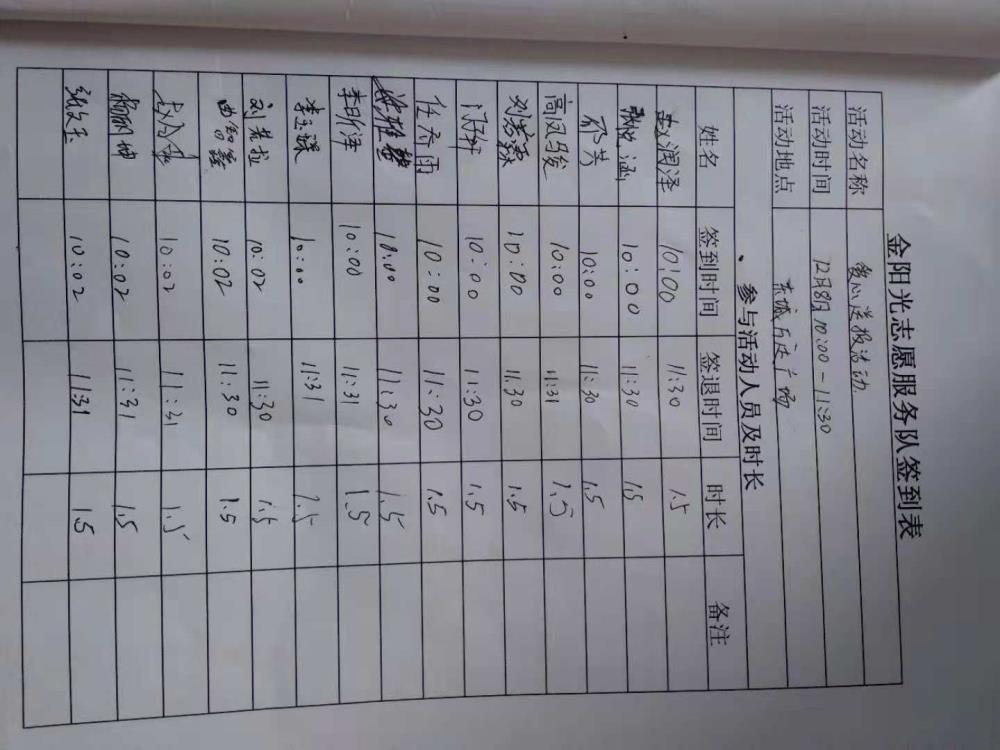 金阳光志愿服务队签到表
活动名称 爱心送报活动
活动时间 12月8日 10:00-11:30
活动地点 东城万达广场
参与活动人员及时长
姓名 签到时间 签退时间 时长 备注
赵润泽 10:00 11:30 1.5
涵 10:00 11:30 1.5
10:00 11:30 1.5
高凤骏 10:00 11:31 1.5
刘若霖 10:00 11:30 1.5
10:00 11:30 1.5
任乔雨 10:00 11:30 1.5
10:00 11:30 1.5
李昕泽 10:00 11:31 1.5
李玉琛 10:00 11:31 1.5
刘 10:02 11:30 1.5
曲智鑫 10:02 11:30 1.5
10:02 11:31 1.5
坤 10:02 11:31 1.5
10:02 11:31 1.5